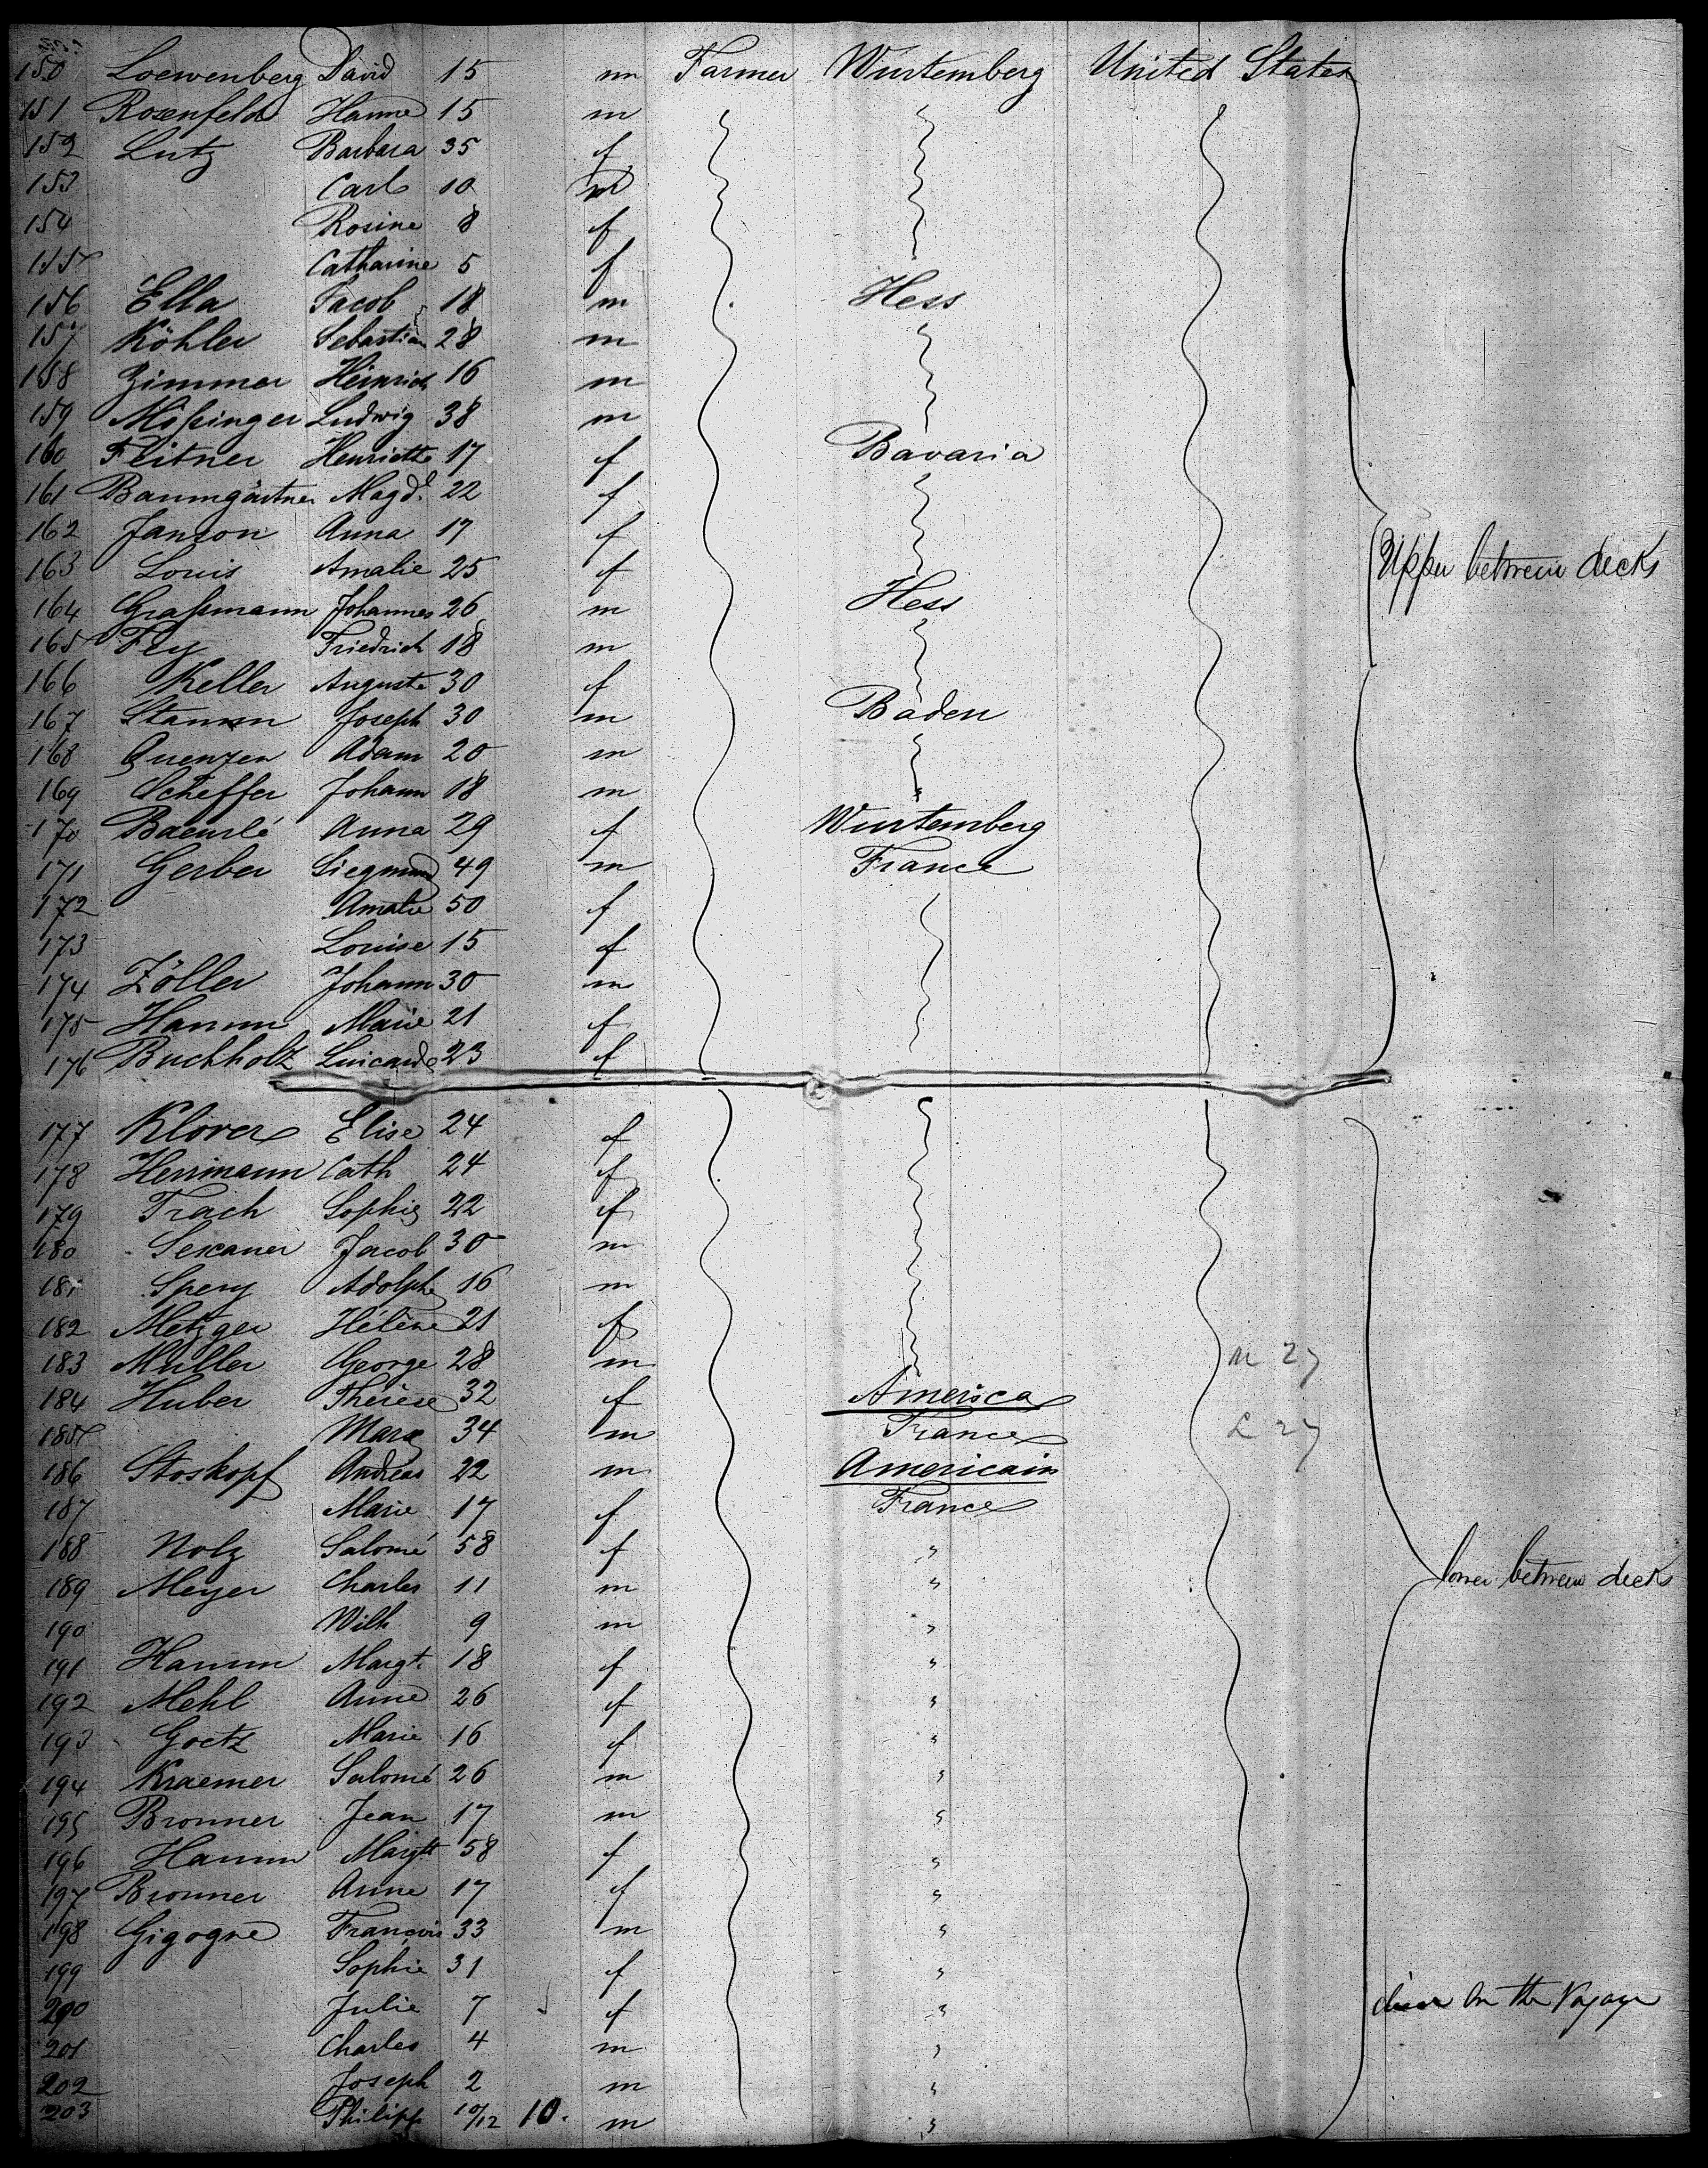 150 Loewenberg David 15 m Farmer Wurtemberg United States
151 Rosenfeld Hanne 15 m
152 Lutz Barbara 35 f
153 Carl 10 m
154 Rosine 8 f
155 Catharine 5 f
156 Ella Jacob 18 m Hess
157 Köhler Sebastian 28 m
158 Zimmer Heinrich 16 m
159 Mißinger Ludwig 38 m
160 Feitner Henriette 17 f Bavaria
161 Baumgärtner Magd. 22 f
162 Janson Anna 17 f
163 Louis Amalie 25 f
Upper between decks
164 Graßmann Johannes 26 m Hess
165 Fey Friedrich 18 m
166 Keller Auguste 30 f
167 Stamm Joseph 30 m Baden
168 Quenzer Adam 20 m
169 Scheffer Johann 18 m
170 Baeurlé Anna 29 f Wurtemberg
171 Gerber Siegmund 49 m France
172 Amalie 50 f
173 Louise 15 f
174 Zöller Johann 30 m
175 Hamm Marie 21 f
176 Buchholz 23 f
177 Klorer Elise 24 f
178 Herrmann Cath 24 f
179 Trach Sophie 22 f
180 Jacob 30 m
181 Spery Adolphe 16 m
182 Metzger Hélène 21 f
183 Müller George 28 m M 27
184 Huber Thérèse 32 f America
185 Marx 34 m France L 27
186 Stoskopf Andreas 22 m Americain
187 Marie 17 f France
188 Nolz Salomé 58 f "
189 Meyer Charles 11 m "
lower between decks
190 Wilh 9 m "
191 Hamm Margt. 18 f "
192 Mehl Anne 26 f "
193 Goetz Marie 16 f "
194 Kraemer Salomé 26 m "
195 Bronner Jean 17 m "
196 Hamm Margtt 58 f "
197 Bronner Anne 17 f "
198 Gigogne François 33 m "
199 Sophie 31 f "
200 Julie 7 f " on the Voyage
201 Charles 4 m "
202 Joseph 2 m "
203 Philipp 10/12 10. m "